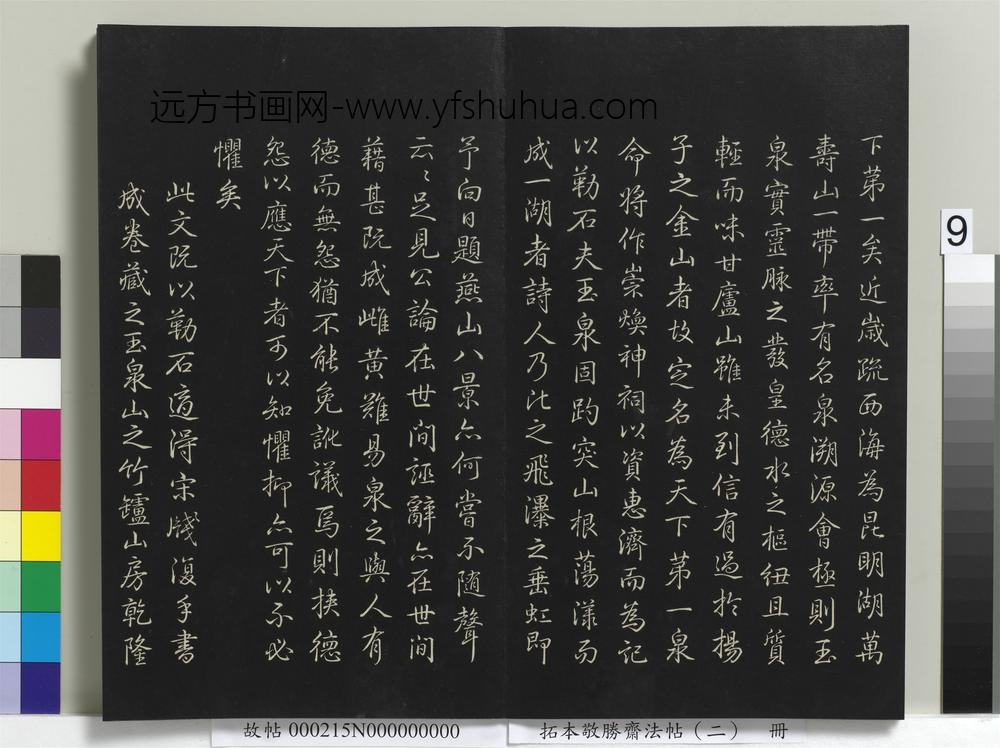 远方书画网-www.yfshuhua.com
下苐一矣近嵗疏西海為昆明湖萬
壽山一帶率有名泉溯源會極則玉
泉實靈脉之發皇德水之樞紐且質
輕而味甘廬山雖未到信有過於揚
子之金山者故定名為天下苐一泉
命將作崇煥神祠以資惠濟而為記
以勒石夫玉泉固趵突山根蕩漾而
成一湖者詩人乃比之飛瀑之垂虹即
予向日題燕山八景亦何嘗不随聲
云〻足見公論在世間誣辭亦在世間
藉甚既成雌黄難易泉之與人有
德而無怨猶不能免訛議焉則挾德
怨以應天下者可以知懼抑亦可以不必
懼矣
此文既以勒石適得宋牋復手書
成卷藏之玉泉山之竹鑪山房乾隆
9
故帖 000215N000000000
拓本敬勝齋法帖（二） 冊